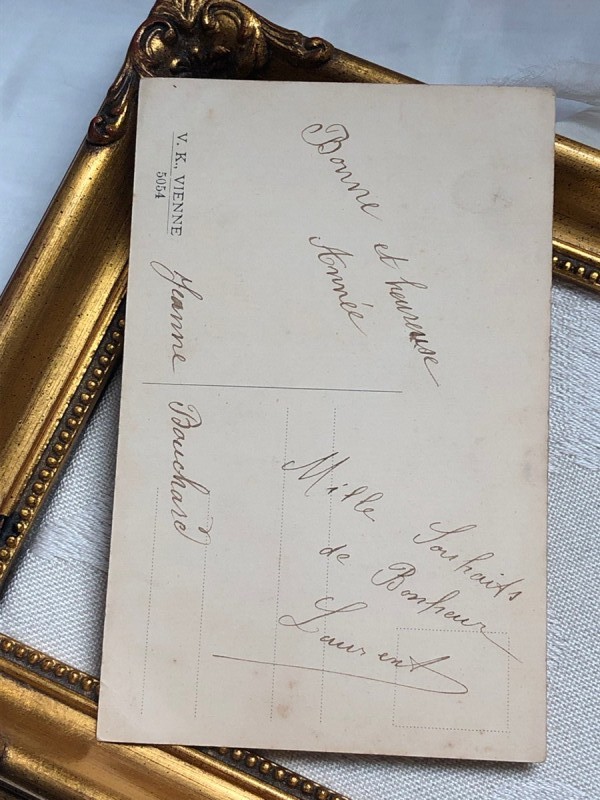 Bonne et heureuse
Année
Mille Souhaits
de Bonheur
Laurent
Jeanne Bouchard
V. K., VIENNE
5054